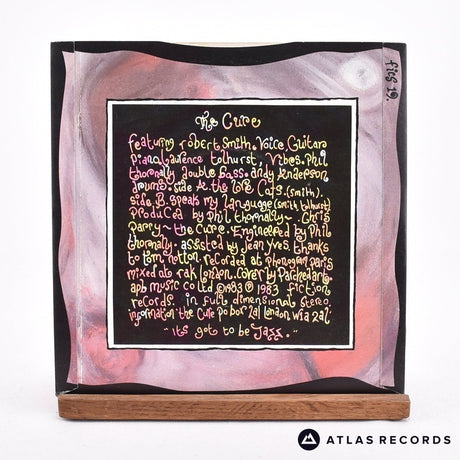 fics 19.
The Cure
featuring robert Smith. Voice, Guitar,
piano, laurence tolhurst, Vibes. phil
thornally double bass. andy anderson
drums. side A. the love Cats. (smith).
side B. speak my language (smith tolhurst)
produced by phil thornally ~ Chris
parry ~ the cure. Engineered by Phil
thornally. assisted by jean yves. thanks
to tom notton. recorded at phonogram paris
mixed at rak london. cover by parched art
apb music co ltd ©1983 ℗ 1983 fiction
records. in full dimensional stereo.
information the cure po box 2al london w1a 2al
~ its got to be jazz. "
ATLAS RECORDS